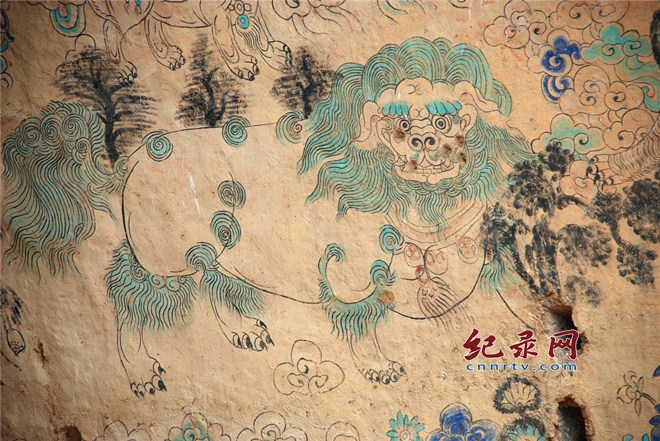 纪录网
cnnrtv.com